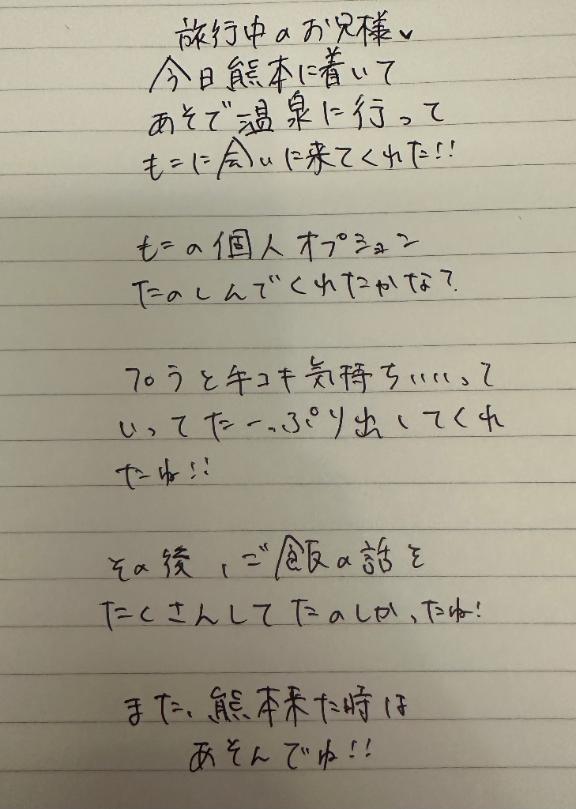 旅行中のお兄様♥
今日熊本に着いて
あそで温泉に行って
もこに会いに来てくれた!!
もこの個人オプション
たのしんでくれたかな?
プラと手コキ気持ちいいって
いってたーっぷり出してくれ
たね!!
その後、ご飯の話を
たくさんしてたのしかったね!
また、熊本来た時は
あそんでね!!